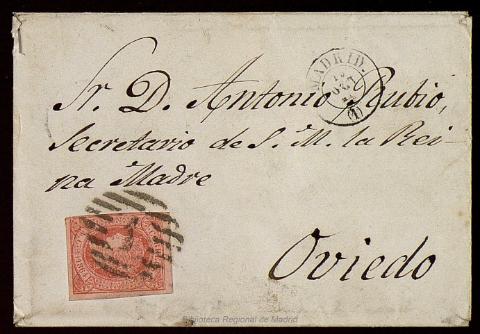 MADRID.
(1)
Sr. D. Antonio Rubio,
Secretario de S. M. la Rei-
na Madre
Oviedo
Biblioteca Regional de Madrid